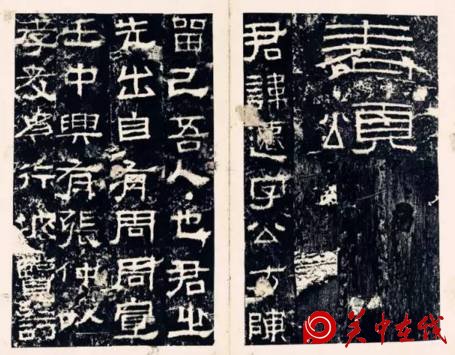 表頌
君諱遷字公方陳
留己吾人也君之
先出自有周周宣
王中興有張仲以
孝友為行披覽詩
关中在线